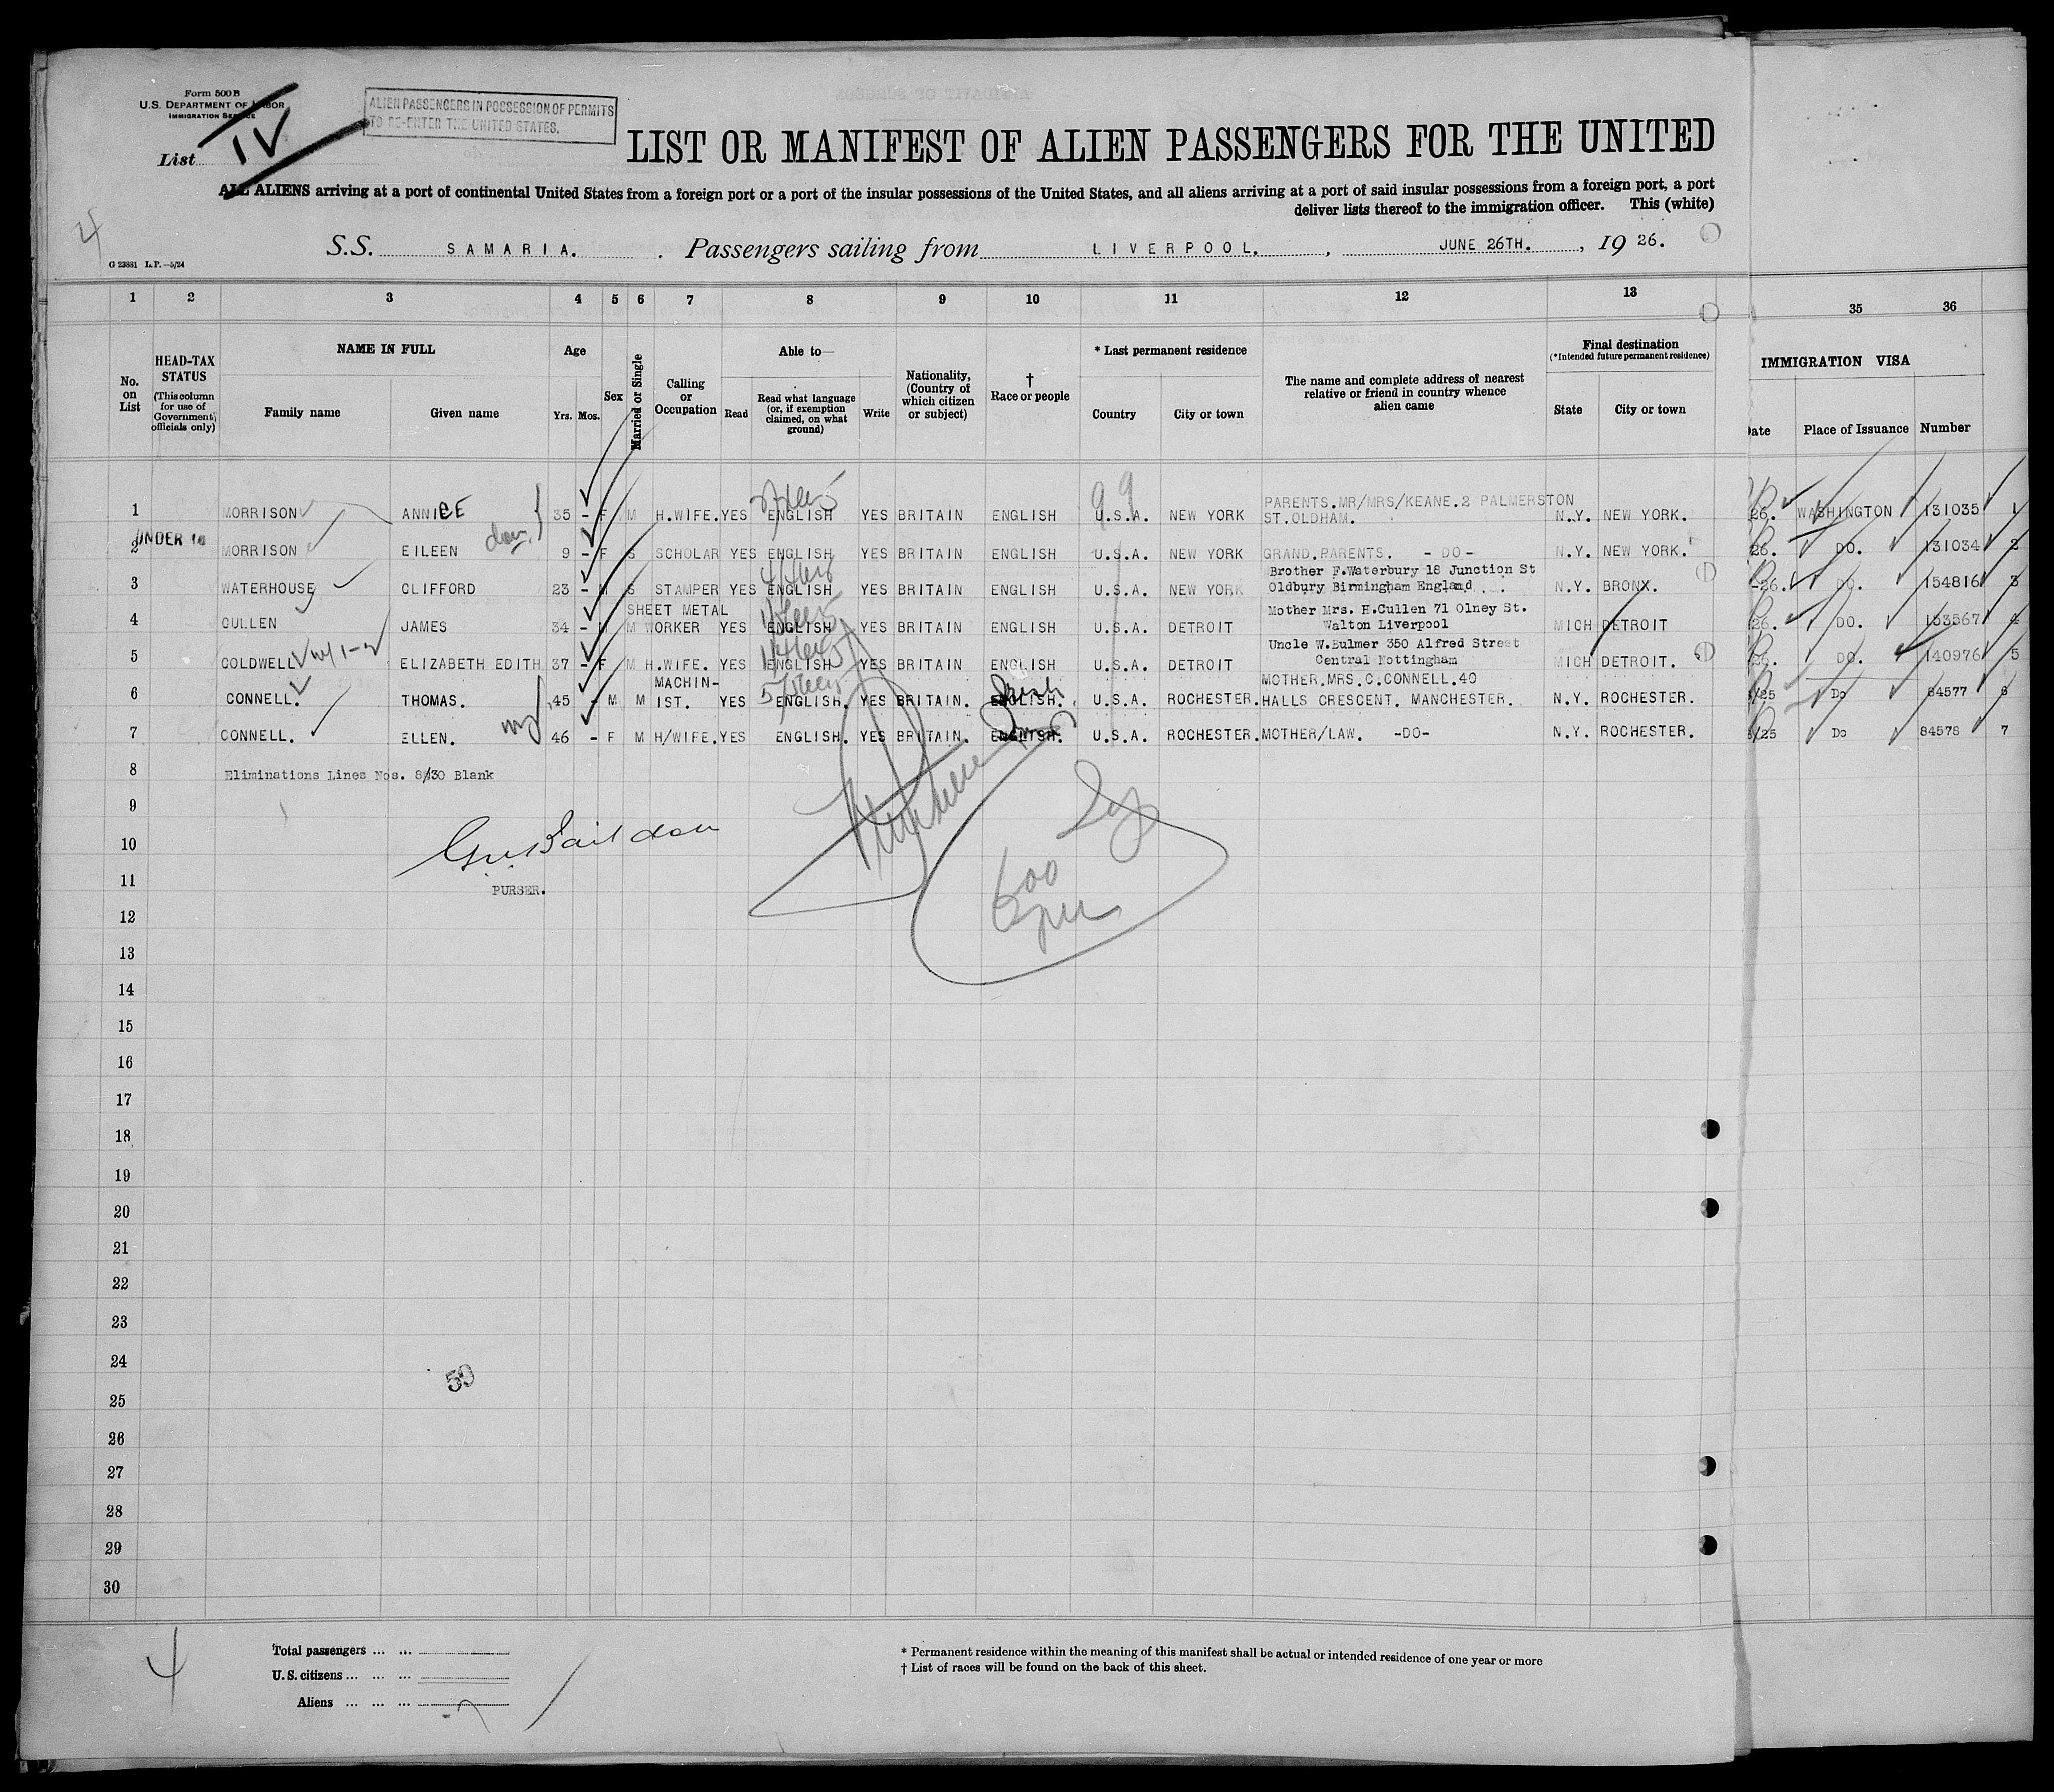 Form 500 B
U.S. DEPARTMENT OF LABOR
IMMIGRATION SERVICE
ALIEN PASSENGERS IN POSSESSION OF PERMITS
TO RE-ENTER THE UNITED STATES.
List IV
LIST OR MANIFEST OF ALIEN PASSENGERS FOR THE UNITED
ALL ALIENS arriving at a port of continental United States from a foreign port or a port of the insular possessions of the United States, and all aliens arriving at a port of said insular possessions from a foreign port, a port
deliver lists thereof to the immigration officer. This (white)
4
S.S. SAMARIA. Passengers sailing from LIVERPOOL. , JUNE 26TH. , 19 26.
G 23881 L.P.—5/24
1 2 3 4 5 6 7 8 9 10 11 12 13 35 36
No. on List
HEAD-TAX STATUS (This column for use of Government officials only)
NAME IN FULL Family name Given name
Age Yrs. Mos.
Sex
Married or Single
Calling or Occupation
Able to— Read Read what language (or, if exemption claimed, on what ground) Write
Nationality, (Country of which citizen or subject)
† Race or people
* Last permanent residence Country City or town
The name and complete address of nearest relative or friend in country whence alien came
Final destination (*Intended future permanent residence) State City or town
IMMIGRATION VISA Date Place of Issuance Number
PARENTS.MR/MRS/KEANE.2 PALMERSTON
1 MORRISON ANNIE 35 - F M H.WIFE. YES ENGLISH YES BRITAIN ENGLISH U.S.A. NEW YORK ST.OLDHAM. N.Y. NEW YORK. 26. WASHINGTON 131035 1
UNDER 16
2 MORRISON EILEEN dau. 9 - F S SCHOLAR YES ENGLISH YES BRITAIN ENGLISH U.S.A. NEW YORK GRAND.PARENTS. -DO- N.Y. NEW YORK. 26. DO. 131034 2
Brother F.Waterbury 18 Junction St
3 WATERHOUSE CLIFFORD 23 - M S STAMPER YES ENGLISH YES BRITAIN ENGLISH U.S.A. NEW YORK Oldbury Birmingham England N.Y. BRONX. -26. DO. 154816 3
SHEET METAL Mother Mrs. H.Cullen 71 Olney St.
4 CULLEN JAMES 34 - M M WORKER YES ENGLISH YES BRITAIN ENGLISH U.S.A. DETROIT Walton Liverpool MICH DETROIT 26. DO. 153567 4
Uncle W.Bulmer 350 Alfred Street
5 COLDWELL ELIZABETH EDITH 37 - F M H.WIFE. YES ENGLISH YES BRITAIN ENGLISH U.S.A. DETROIT Central Nottingham MICH DETROIT. 26. DO. 140976 5
MACHIN- MOTHER.MRS.C.CONNELL.40
6 CONNELL. THOMAS. 45 - M M IST. YES ENGLISH. YES BRITAIN. ENGLISH. Irish U.S.A. ROCHESTER. HALLS CRESCENT. MANCHESTER. N.Y. ROCHESTER. /25 Do 84577 6
7 CONNELL. ELLEN. 46 - F M H/WIFE. YES ENGLISH. YES BRITAIN. ENGLISH. U.S.A. ROCHESTER. MOTHER/LAW. -DO- N.Y. ROCHESTER. /25 Do 84578 7
8 Eliminations Lines Nos. 8/30 Blank
9
10
11
PURSER.
12
13
14
15
16
17
18
19
20
21
22
23
24
59
25
26
27
28
29
30
4
Total passengers ... ...
U.S. citizens ... ... ...
Aliens ... ... ... 7
* Permanent residence within the meaning of this manifest shall be actual or intended residence of one year or more
† List of races will be found on the back of this sheet.